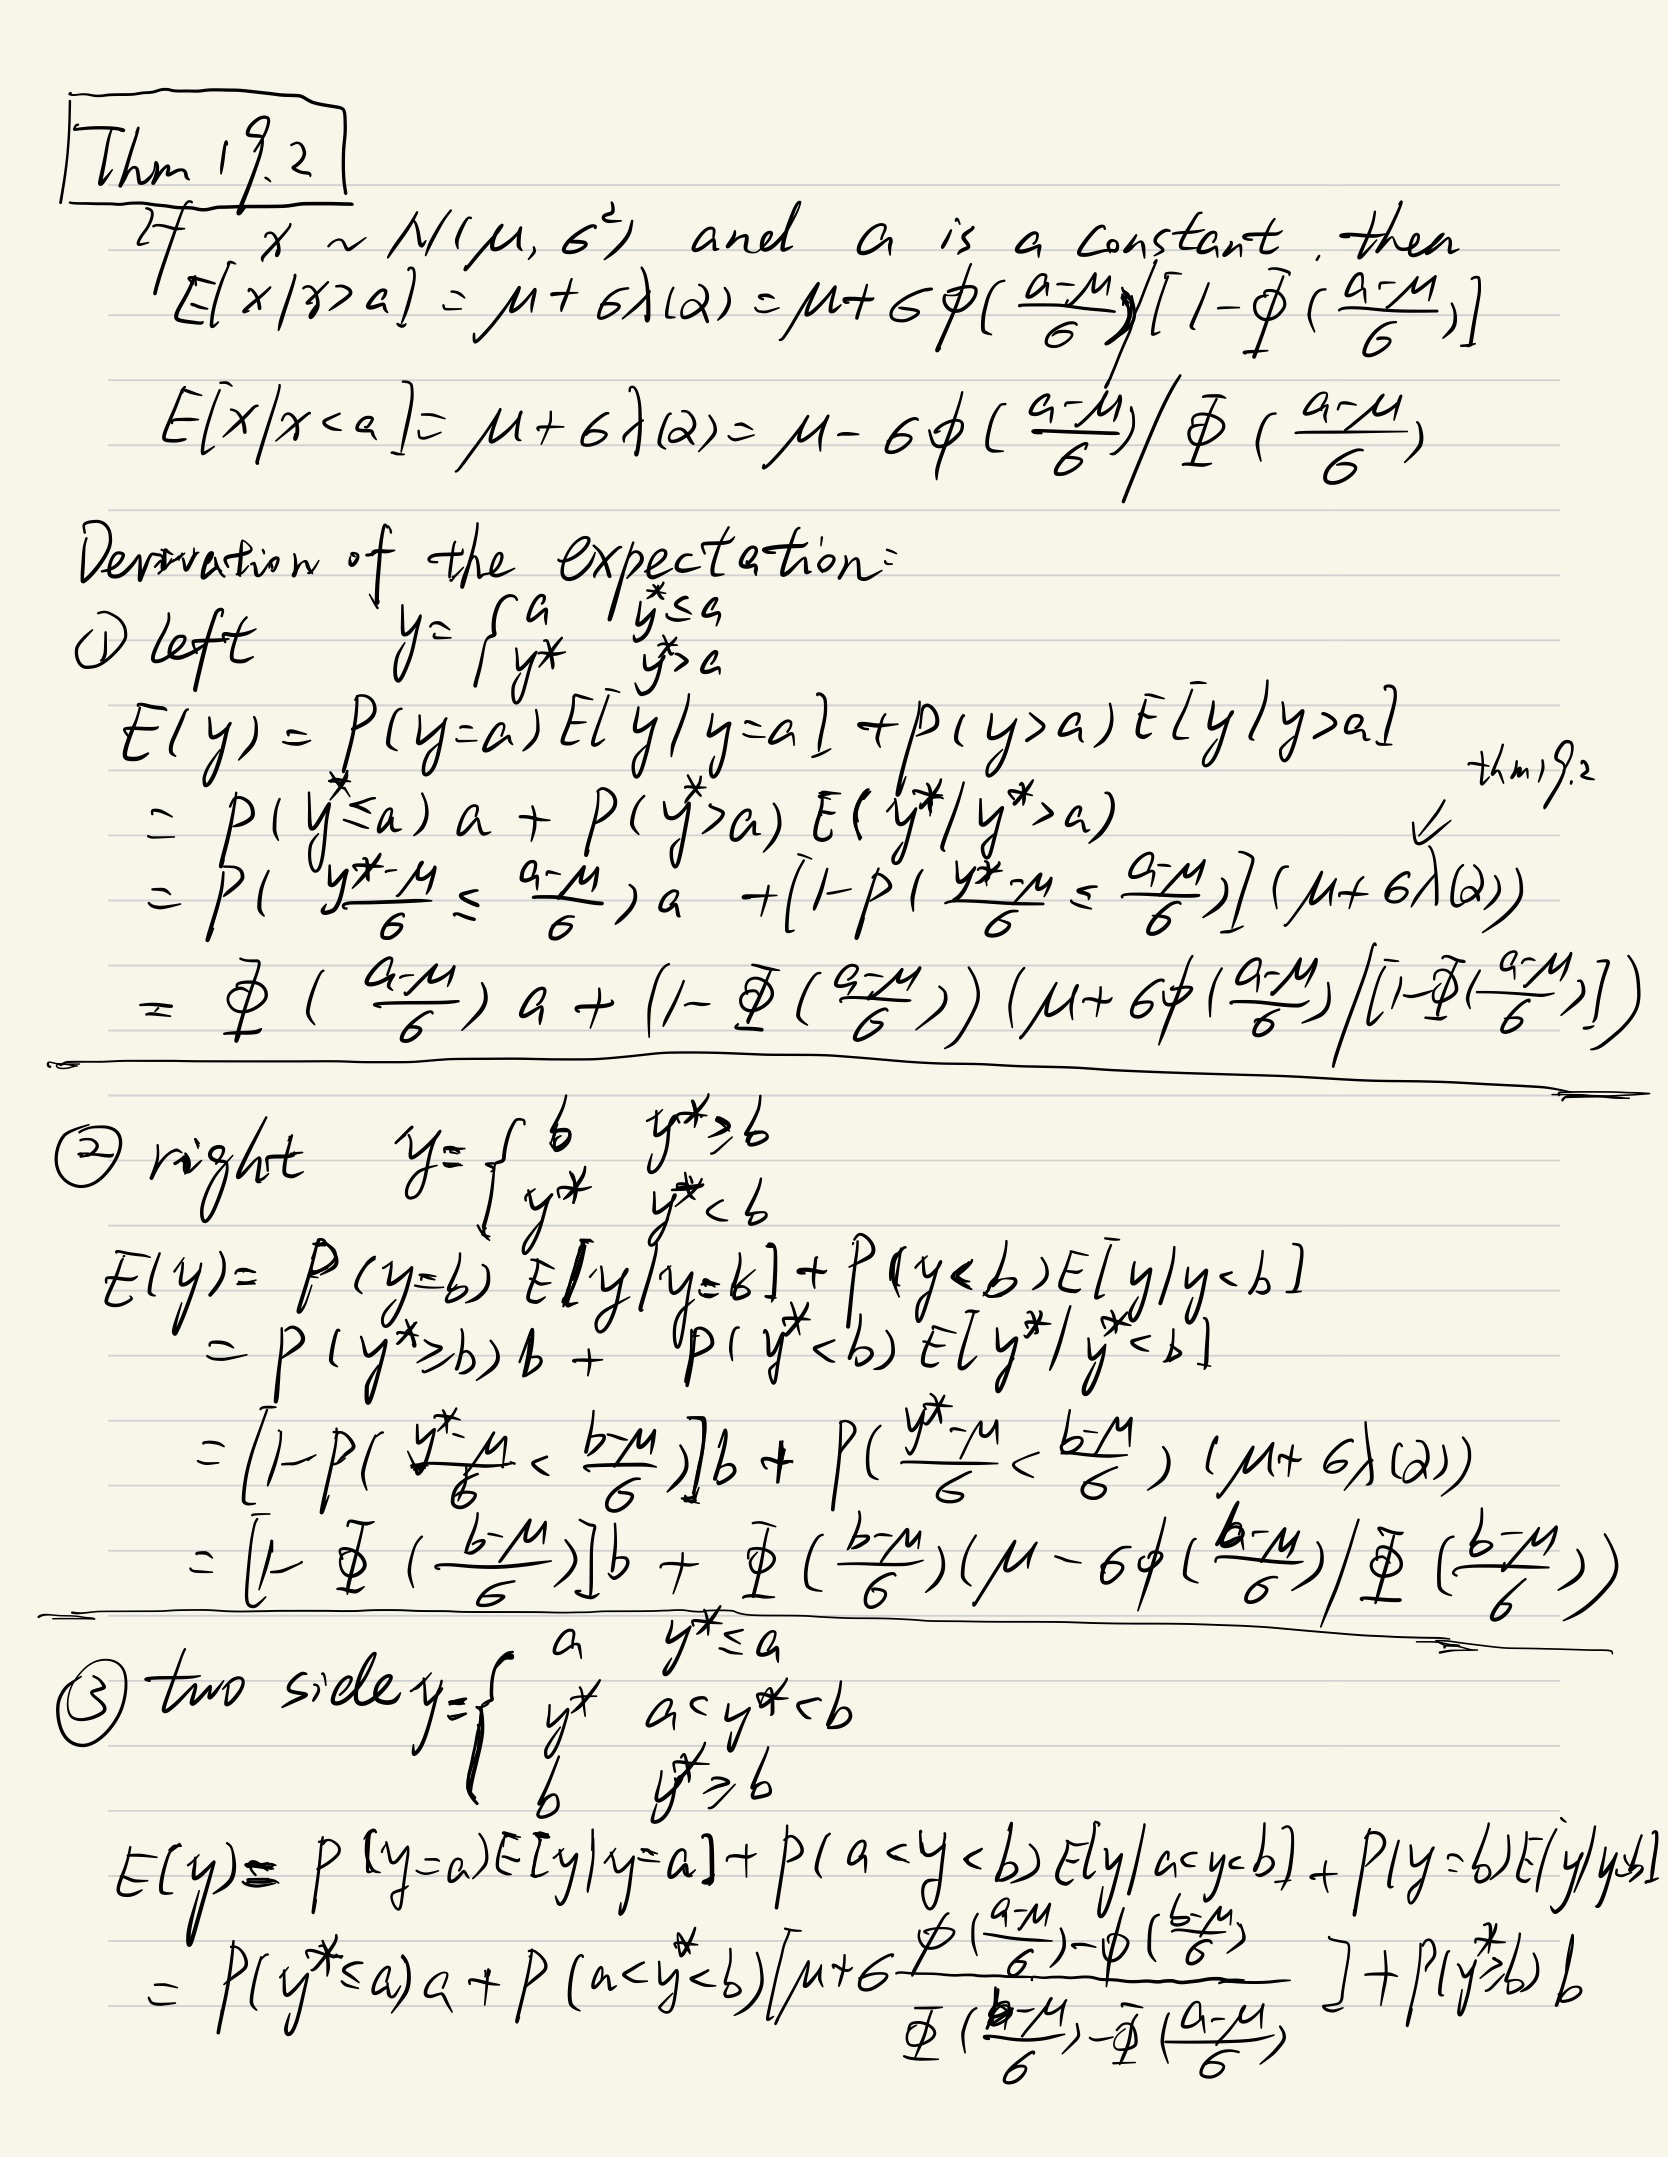 Thm 19.2
If x ~ N(μ, σ²) and a is a constant, then
E[x|x>a] = μ + σλ(α) = μ + σϕ((a-μ)/σ)/[1-Φ((a-μ)/σ)]
E[x|x<a] = μ + σλ(α) = μ - σϕ((a-μ)/σ)/Φ((a-μ)/σ)
Derivation of the expectation:
① left y = { a y*≤a
y* y*>a
E(y) = P(y=a) E[y|y=a] + P(y>a) E[y|y>a]
thm19.2
= P(y*≤a) a + P(y*>a) E(y*|y*>a)
= P((y*-μ)/σ ≤ (a-μ)/σ) a + [1-P((y*-μ)/σ ≤ (a-μ)/σ)] (μ + σλ(α))
= Φ((a-μ)/σ) a + (1-Φ((a-μ)/σ)) (μ + σϕ((a-μ)/σ)/[1-Φ((a-μ)/σ)])
② right y = { b y*≥b
y* y*<b
E(y) = P(y=b) E[y|y=b] + P(y<b) E[y|y<b]
= P(y*≥b) b + P(y*<b) E[y*|y*<b]
= [1-P((y*-μ)/σ < (b-μ)/σ)] b + P((y*-μ)/σ < (b-μ)/σ) (μ + σλ(α))
= [1-Φ((b-μ)/σ)] b + Φ((b-μ)/σ) (μ - σϕ((b-μ)/σ)/Φ((b-μ)/σ))
③ two side y = { a y*≤a
y* a<y*<b
b y*≥b
E(y) = P(y=a) E[y|y=a] + P(a<y<b) E[y|a<y<b] + P(y=b) E[y|y=b]
= P(y*≤a) a + P(a<y*<b) [μ + σ (ϕ((a-μ)/σ) - ϕ((b-μ)/σ))/(Φ((b-μ)/σ) - Φ((a-μ)/σ))] + P(y*≥b) b